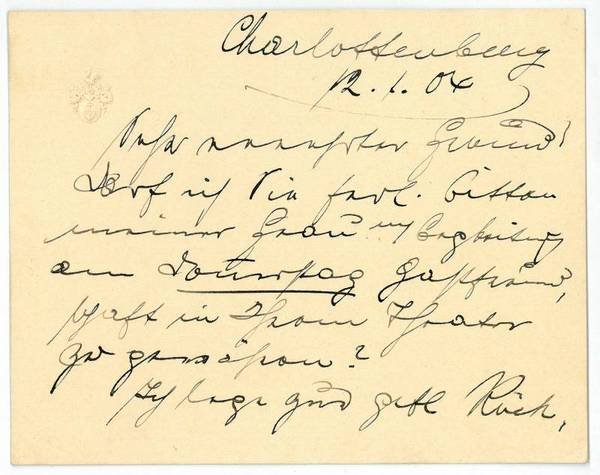 Charlottenburg
12.1.04
Sehr verehrter Freund!
Darf ich Sie frdl. bitten
meiner Frau u Begleitung
am Donnerstag Gastfreund,
schaft in Ihrem Theater
zu gewähren?
Ich lege zur gefl Rück,